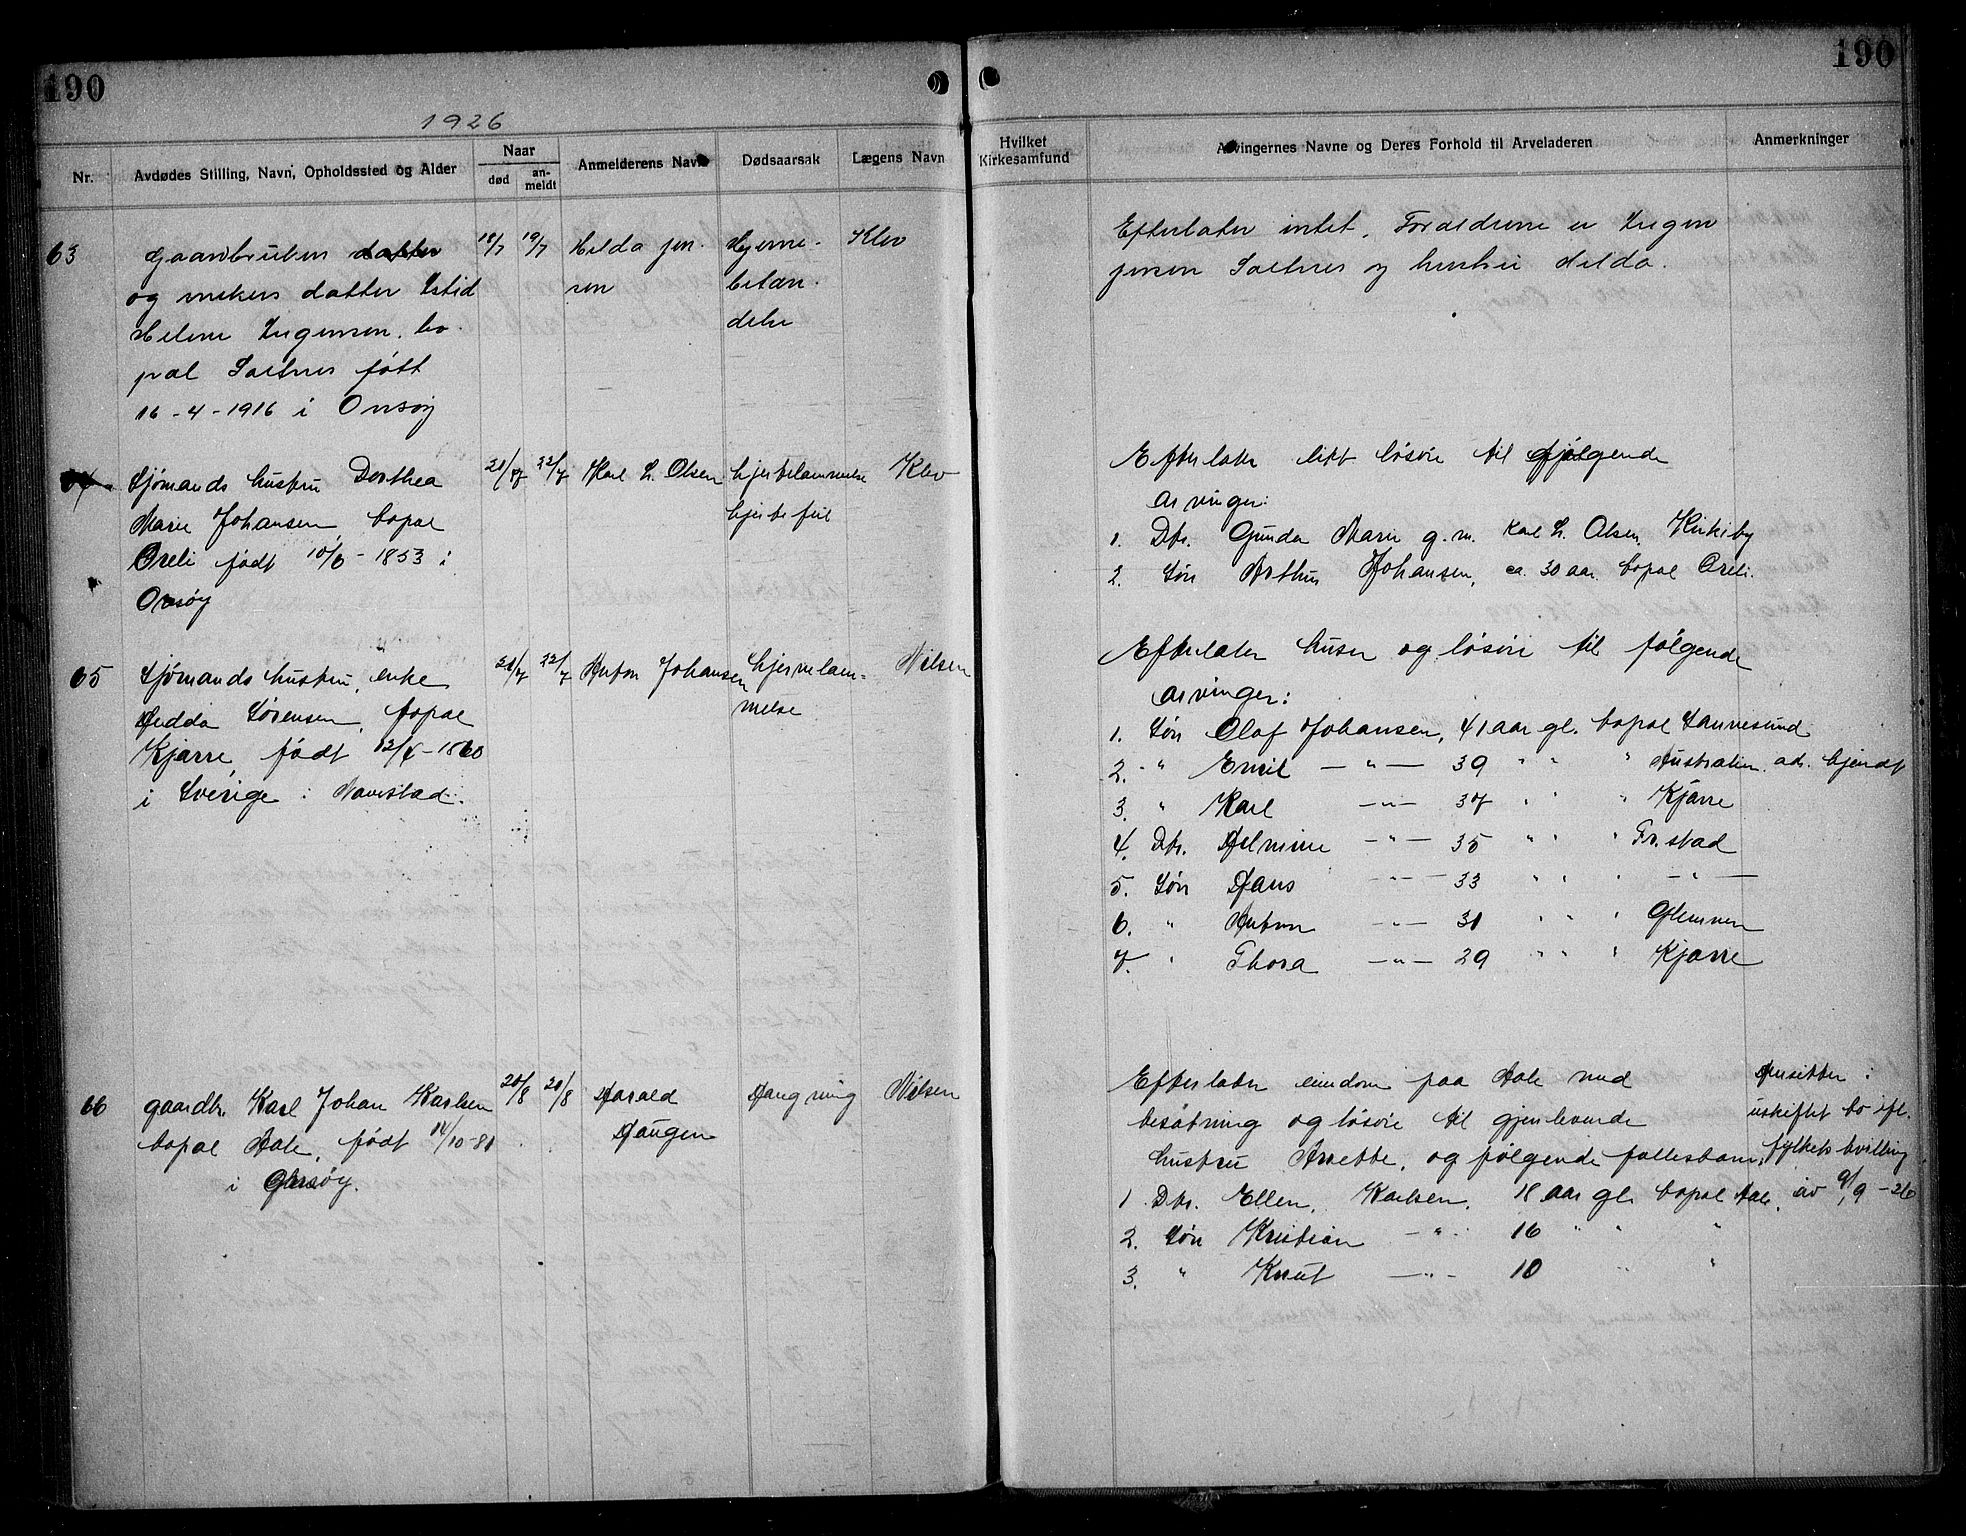 190
1926
Nr.
Avdødes Stilling, Navn, Opholdssted og Alder
Naar
død
an-
meldt
Anmelderens Navn
Dødsaarsak
Lægens Navn
63
Gaardbruker datter
og datter
Helene bo-
pæl Saltnes født
16-4-1916 i Onsøy
18/7
19/7
Hilda Jen-
sen
Hjerne-
betæn-
delse
Klev
64
Sjømands hustru Dorthea
Marie Johansen, bopæl
Øreli født 10/6-1853 i
Onsøy
21/7
22/7
Karl L. Olsen
hjertelammelse
hjertefeil
Klev
65
Sjømands hustru, enke
Hedda Sørensen, bopæl
Kjærre, født 12/4-1860
i Sverige i Navestad.
21/7
22/7
Anton Johansen
hjernelam-
melse
Nilsen
66
gaardbr. Karl Johan Karlsen
bopæl Aale, født 14/10-81
i Onsøy.
20/8
21/8
Harald
Haugen
Hængning
Nilsen
190
Hvilket
Kirkesamfund
Arvingernes Navne og Deres Forhold til Arveladeren
Anmerkninger
Efterlater intet. Forældrene er Ingen
Jensen Saltnes og hustru Hilda.
Efterlater litt løsøre til følgende
arvinger:
1. Dtr. Gunda Marie g.m. Karl L. Olsen, Kirkeby
2. Søn Arthur Johansen, ca. 30 aar. bopæl Øreli.
Efterlater huser og løsøre til følgende
arvinger:
1. Søn Olaf Johansen, 41 aar gl. bopæl Sannesund
2. - " Emil — " — 39 " " " Australien. adr. kjendt
3. " Karl — " — 37 " " " Kjærre
4. Dtr. Helmine — " — 35 " " " Fr.stad
5. Søn Hans — " — 33 " " " — " —
6. " Anton — " — 31 " " " Glemmen
7. " Thora — " — 29 " " " Kjærre
Efterlater eiendom paa Aale med
besætning og løsøre til gjenlevende
hustru Anette, og følgende fællesbarn,
1. Dtr. Ellen, Karlsen, 18 aar gl. bopæl Aale.
2. Søn Kristian — " — 16 " " "
3. " Knut — " — 10 " "
Hensitter i
uskiftet bo ifl.
fylkets bevilling
av 9/9-26